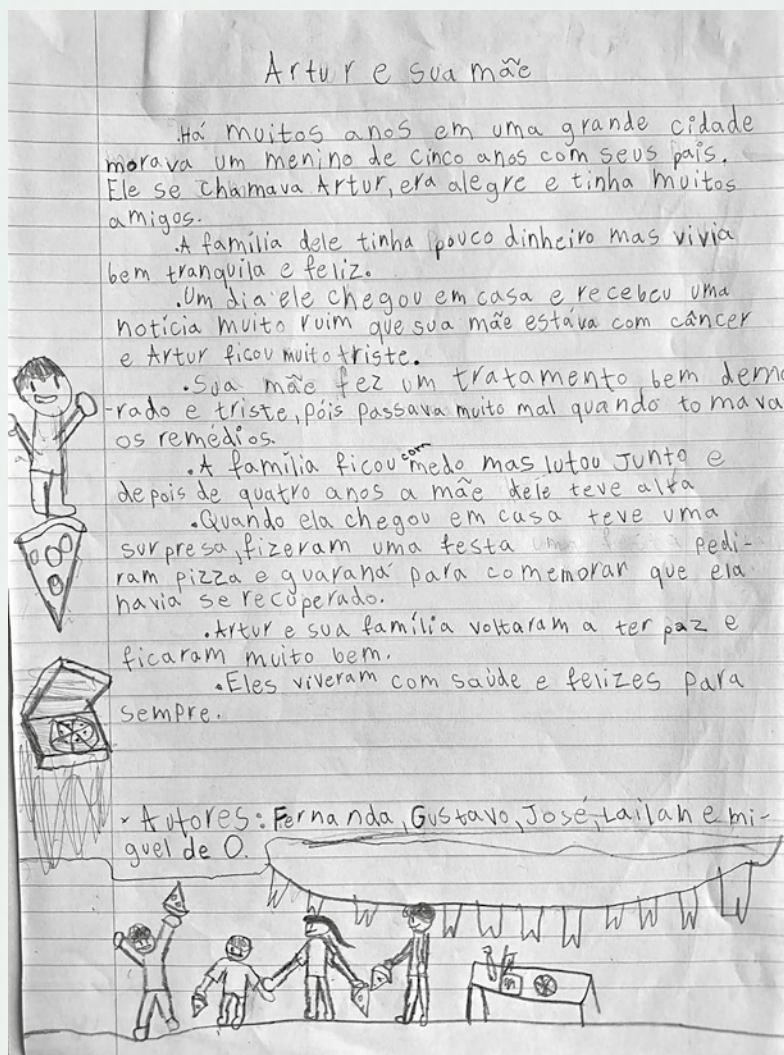 Artur e sua mãe
.Há muitos anos em uma grande cidade
morava um menino de cinco anos com seus pais.
Ele se chamava Artur, era alegre e tinha muitos
amigos.
.A família dele tinha pouco dinheiro mas vivia
bem tranquila e feliz.
.Um dia ele chegou em casa e recebeu uma
notícia muito ruim que sua mãe estava com câncer
e Artur ficou muito triste.
.Sua mãe fez um tratamento bem demo
-rado e triste, póis passava muito mal quando tomava
os remédios.
.A família ficou com medo mas lutou Junto e
depois de quatro anos a mãe dele teve alta
.Quando ela chegou em casa teve uma
surpresa, fizeram uma festa pedi-
ram pizza e guaraná para comemorar que ela
havia se recuperado.
.Artur e sua família voltaram a ter paz e
ficaram muito bem.
.Eles viveram com saúde e felizes para
sempre.
Autores: Fernanda, Gustavo, José, Lailah e mi-
guel de O.